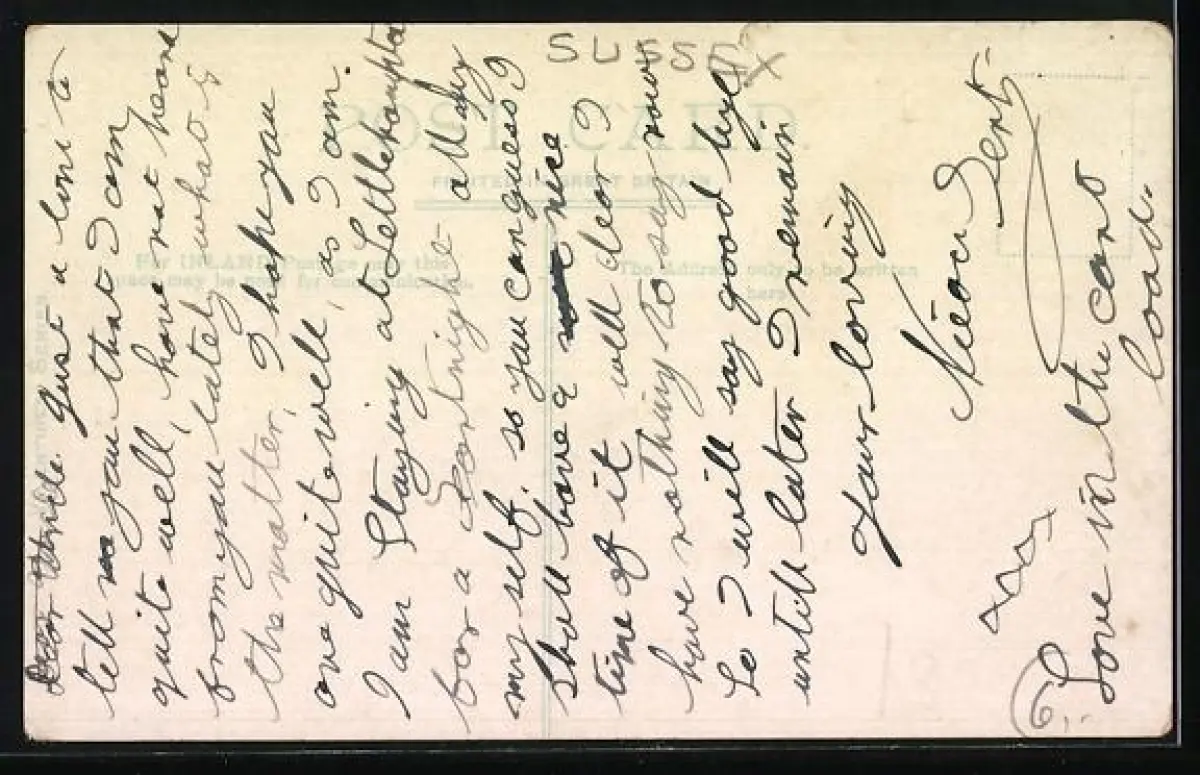 Dear Uncle just a line to
tell you that I am
quite well, have not heard
from you lately whats
the matter, I hope you
are quite well, as I am.
I am Staying at Littlehampton
for a Fortnight a May
my self. so you can guess I
shall have a nice
time of it will dear I
have nothing to say now
So I will say good bye
untill later I remain
your loving
Niece Gert
Love in the cart
load.
SUSSEX
POST CARD.
PRINTED IN GREAT BRITAIN
For INLAND Postage only this
space may be used for communication.
The Address only to be written
here.
SERIES
6